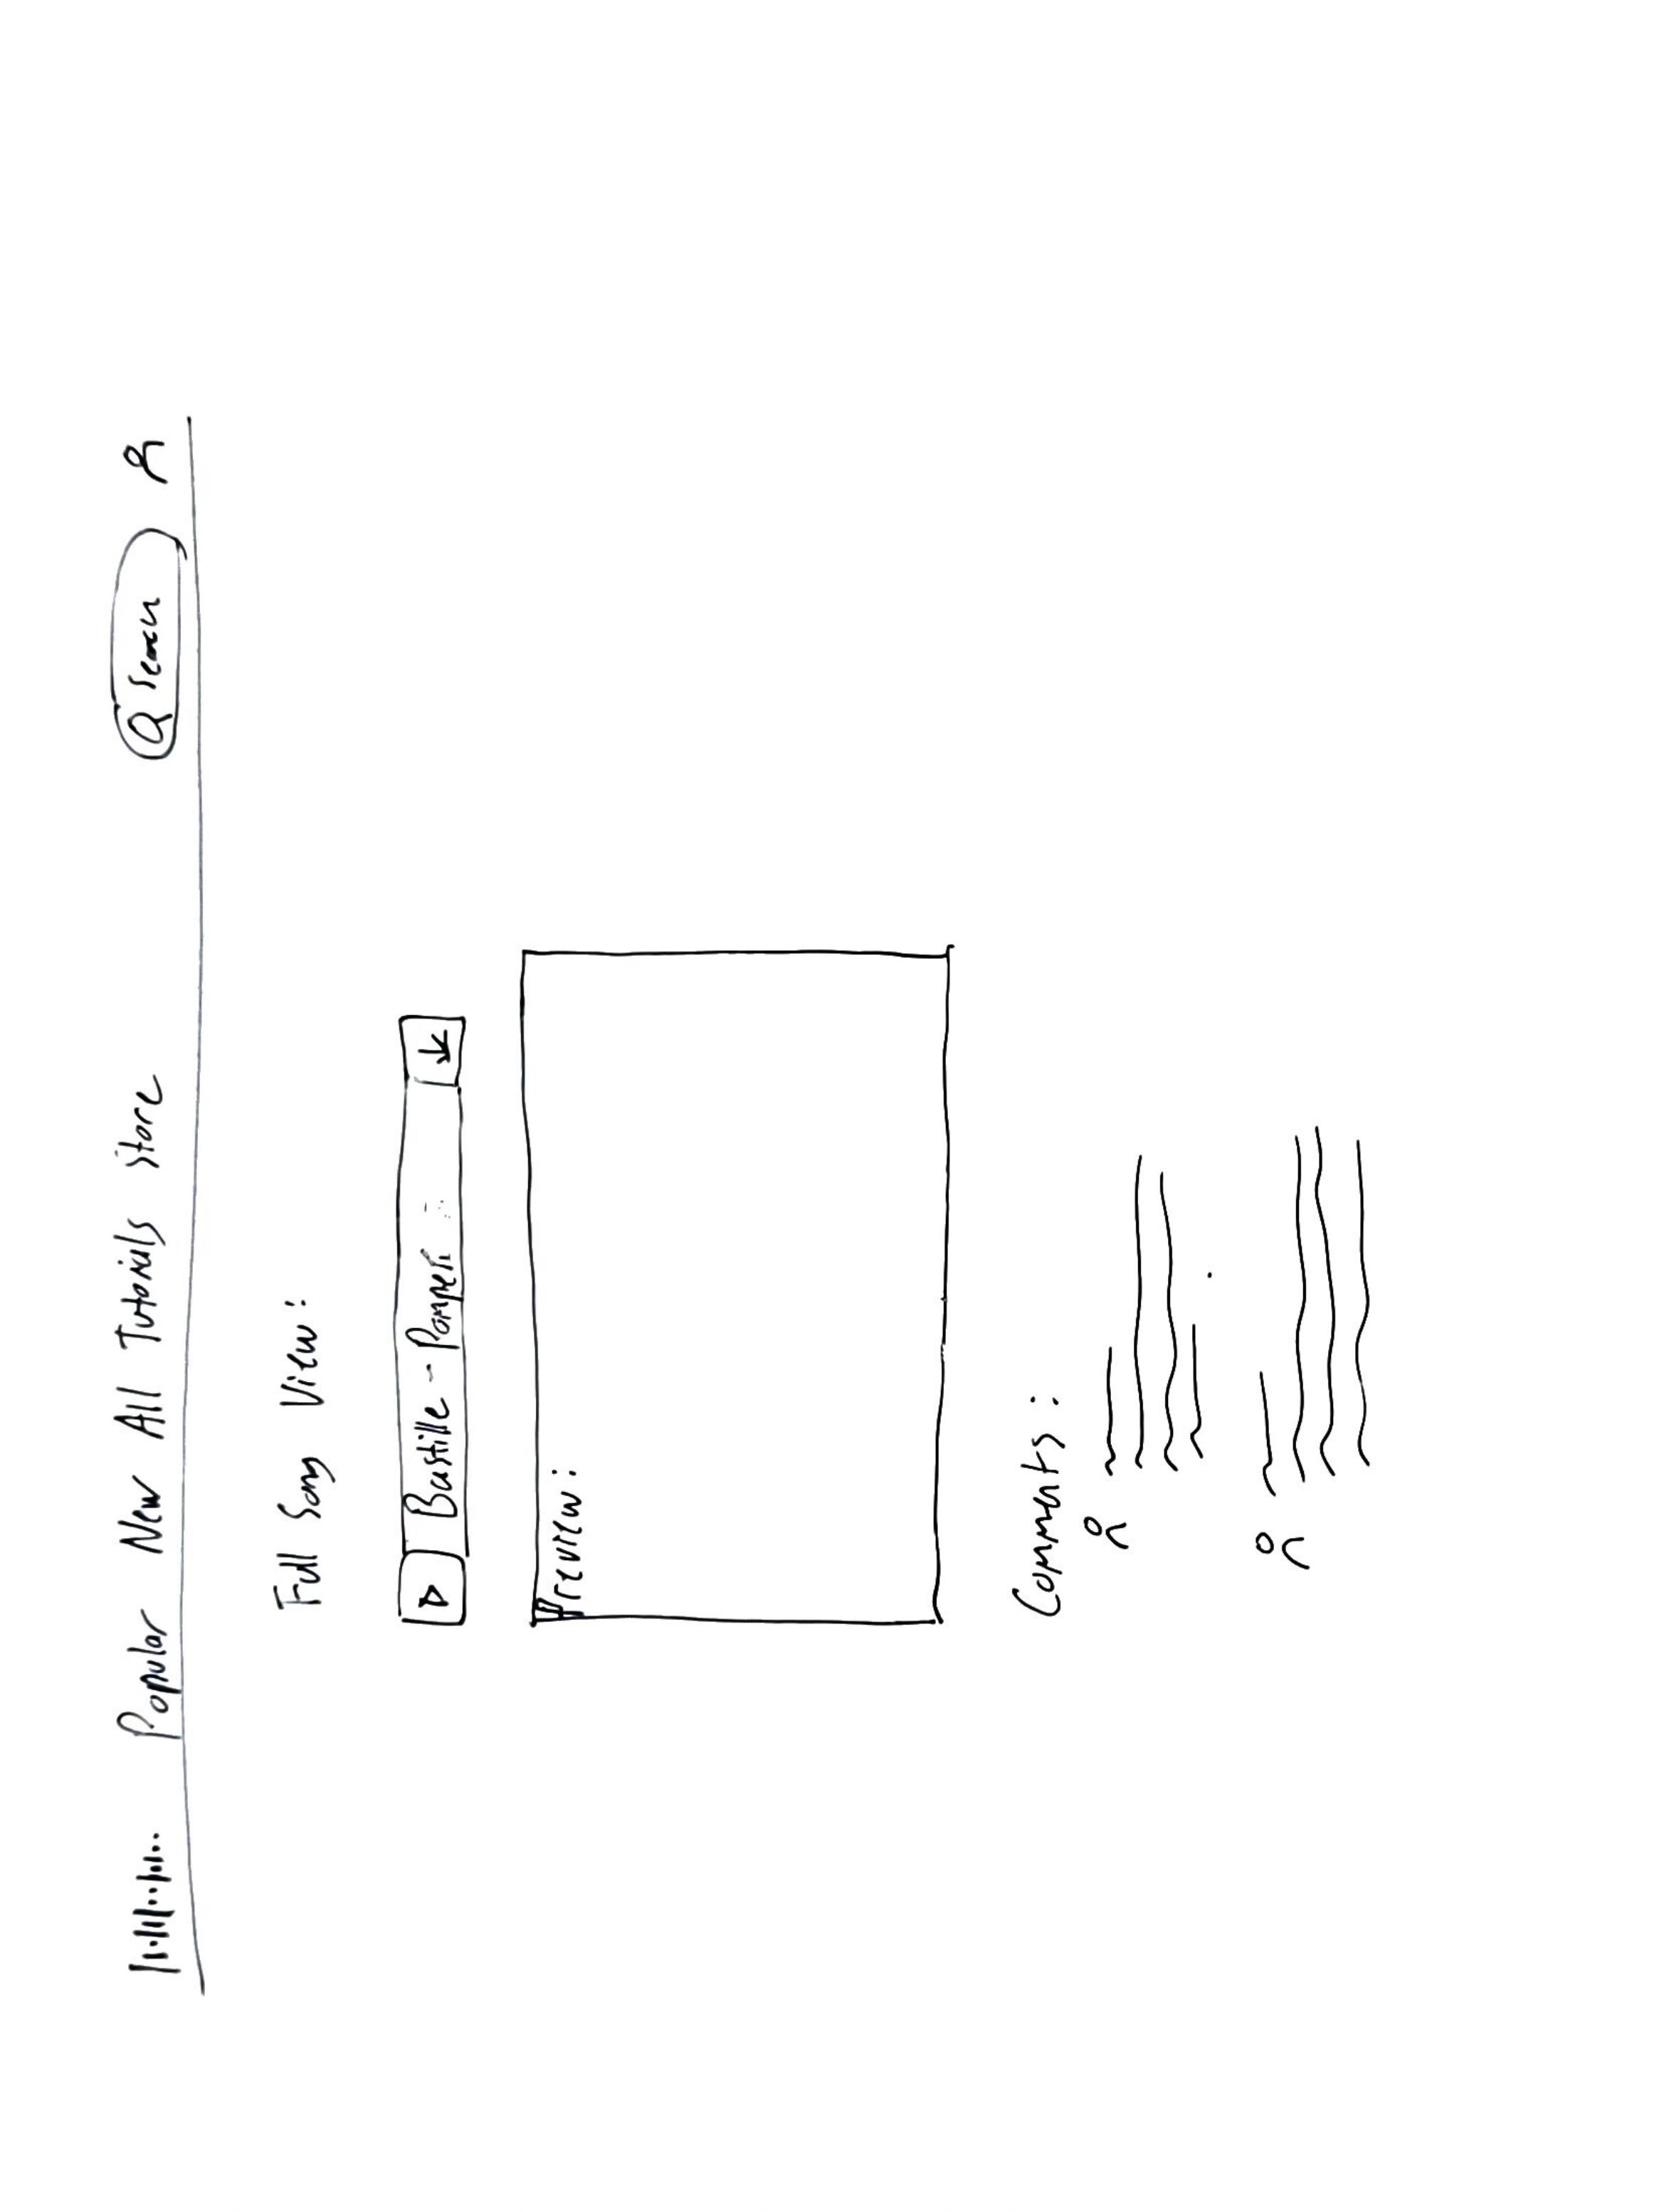 Popular New All Tutorials Store Search
Full Song View:
Bastille - Pompeii
Preview:
Comments: